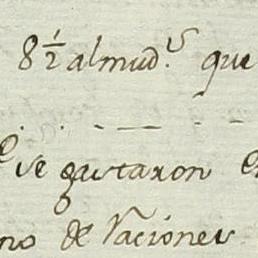 8½ almud.s que
se gastaron
no de Raciones